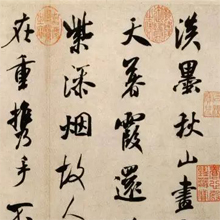 淡墨秋山畫
天暮霞還
紫添烟故人
在重攜手不